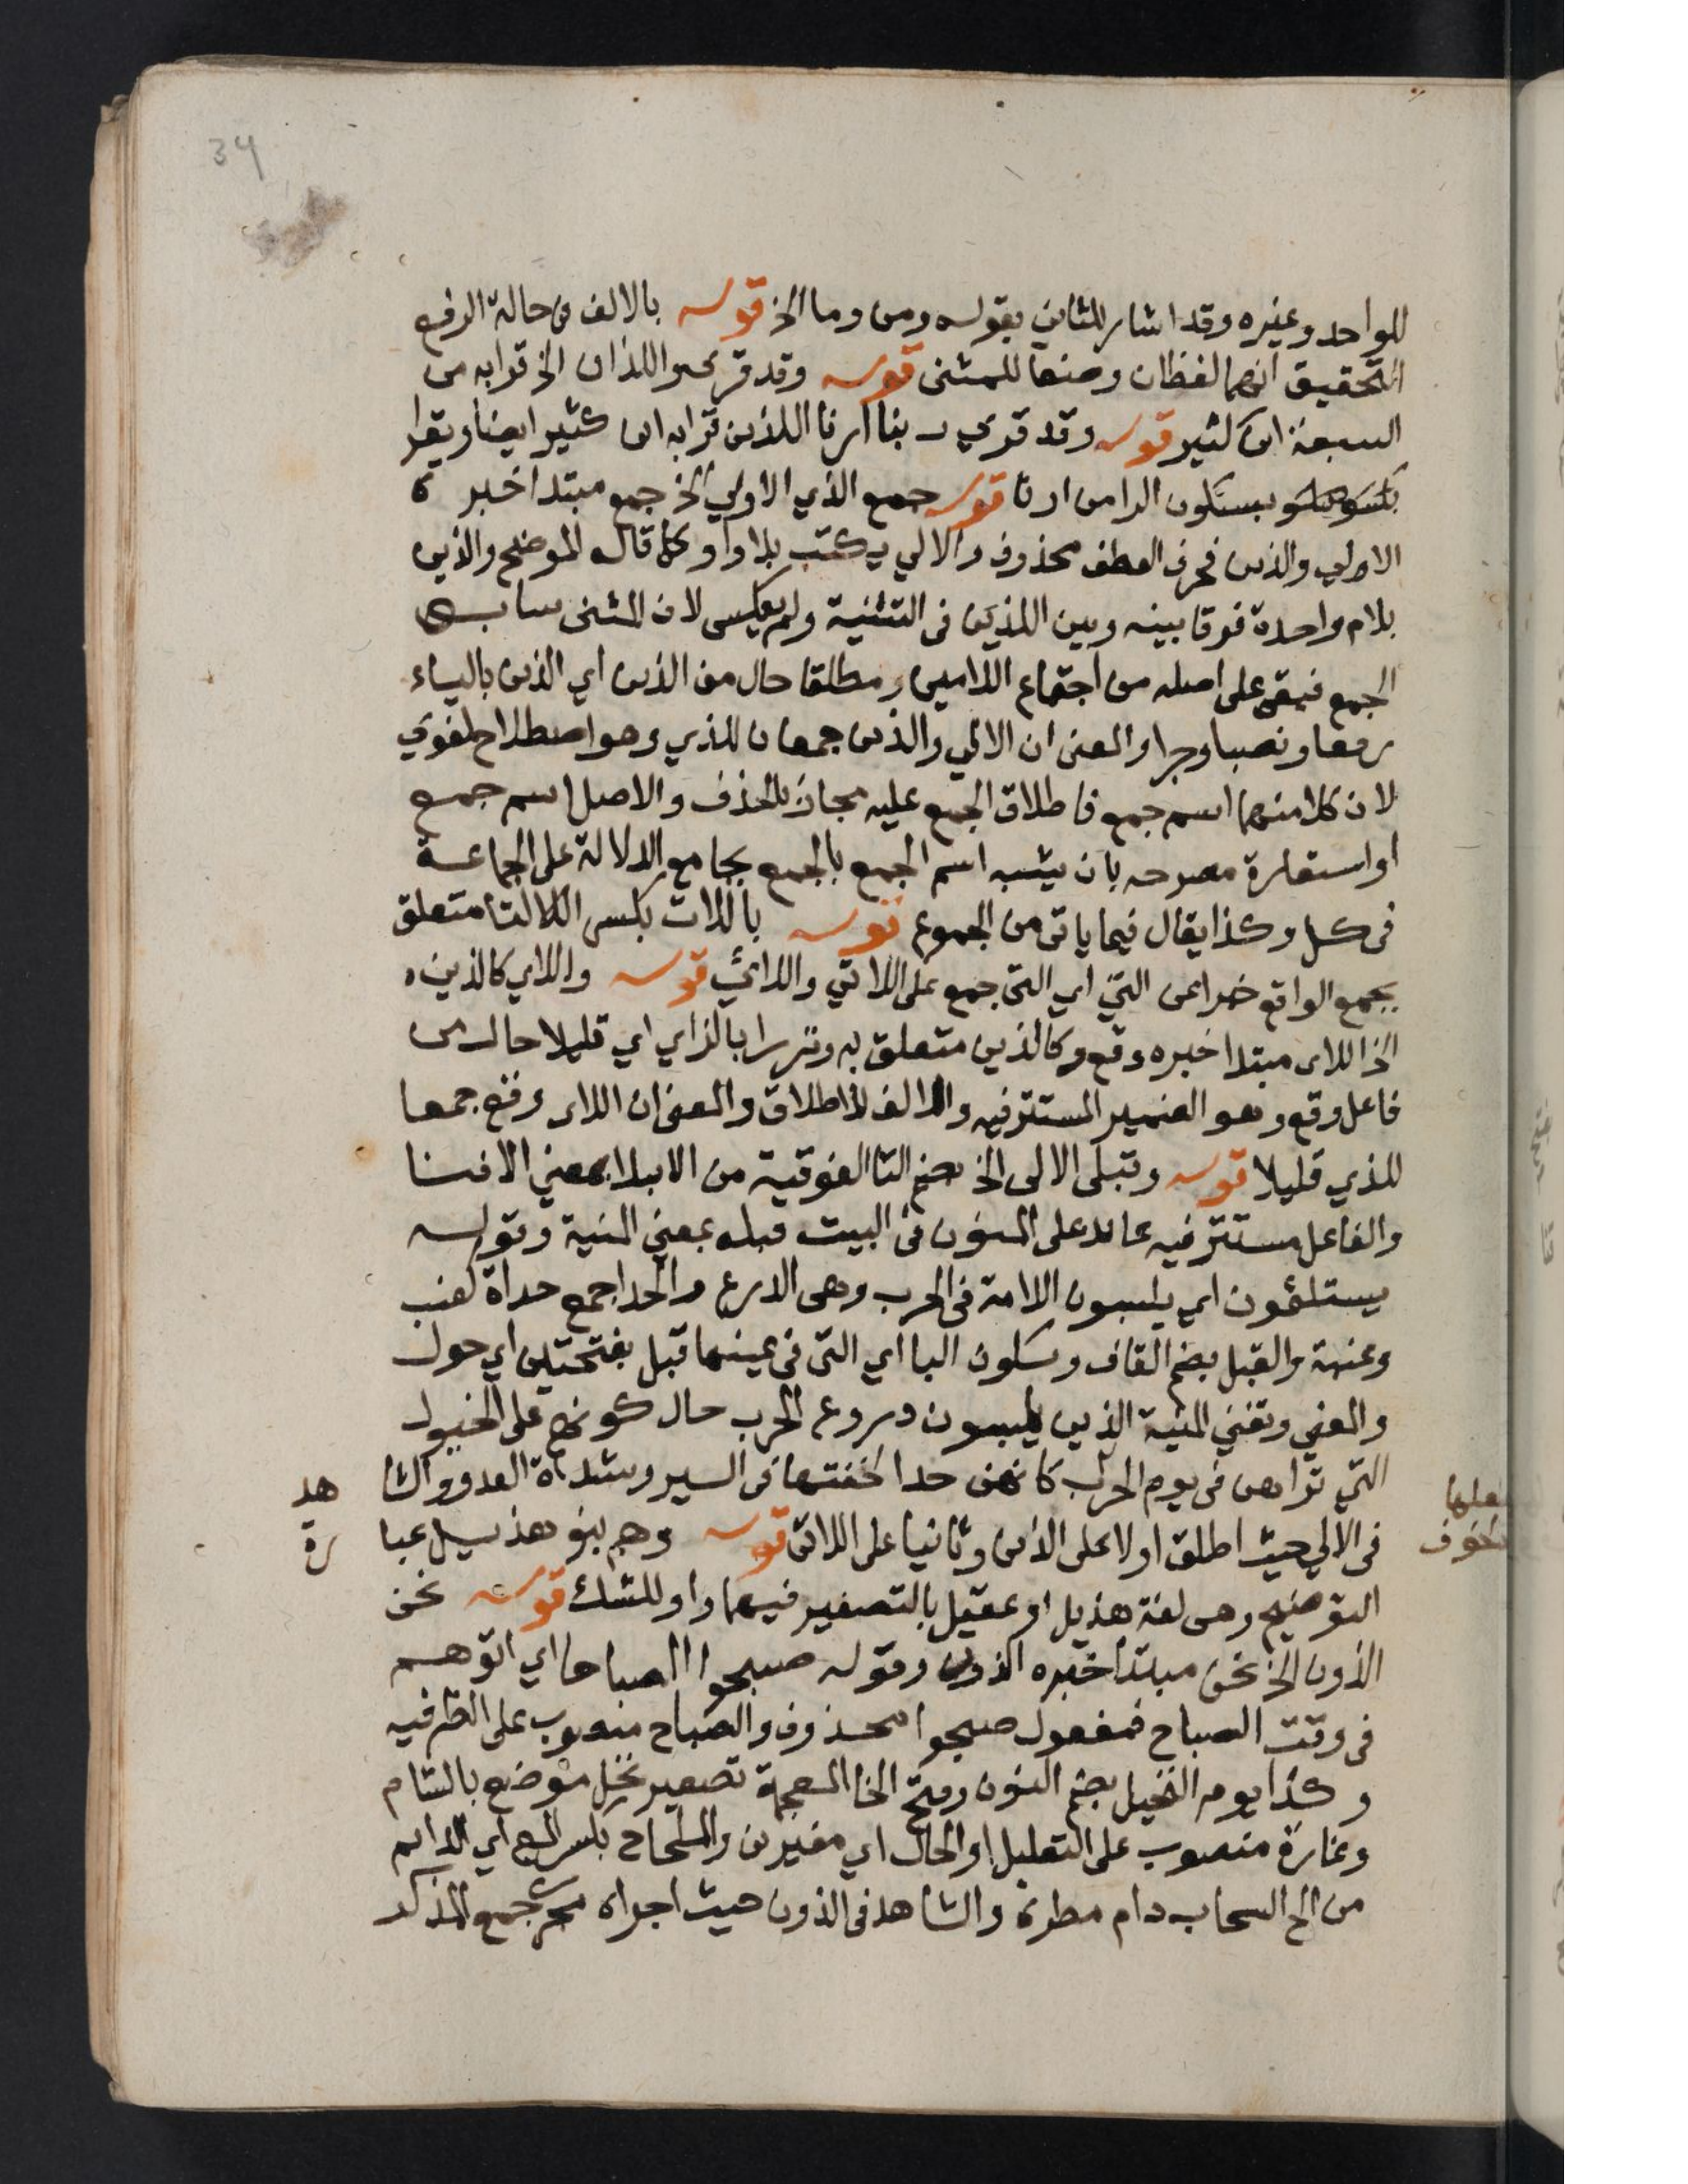 34
للواحد وغيره وقد اشار للثاني بقوله ومن وما الخ قوله بالالف في حالة الرفع
التحقيق انهما لفظان وضعا للمثنى قوله وقد قرى واللذان الخ قرابه من
السبعة ابن كثير قوله وقد قري ربنا ارنا اللذين قرابه ابن كثير ايضا ويقرا
بسكون الرا من ارنا قوله جمع الذي الاولي الخ جمع مبتدا خبره
الاولي والذين فحرف العطف محذوف والالي يكتب بلا واو كما قال الموضح والذين
بلام واحدة فرقا بينه وبين اللذين في التثنية ولم يعكس لان المثنى سابق
الجمع فبقي على اصله من اجتماع اللامين ومطلقا حال من الذين اي الذين بالياء
رفعا ونصبا وجرا والمعنى ان الالي والذين جمعان للذي وهو اصطلاح لغوي
لان كلا منهما اسم جمع فاطلاق الجمع عليه مجاز بالحذف والاصل اسم جمع
او استعارة مصرحه بان يشبه اسم الجمع بالجمع بجامع الدلالة على الجماعة
في كل وكذا يقال فيما ياتي من الجموع قوله باللات بكسر التا متعلق
بجمع الواقع خبرا عن التي اي التي جمع على اللاتي واللائي قوله واللاي كالذين
الخ اللاى مبتدا خبره وقع وكالذين متعلق به ونزرا بالزاي اي قليلا حال من
فاعل وقع وهو الضمير المستتر فيه والالف للاطلاق والمعنى ان اللاى وقع جمعا
للذي قليلا قوله وتبلى الالى الخ بضم التا الفوقية من الابلا بمعني الافنا
والفاعل مستتر فيه عائد على المنون في البيت قبله بمعني المنية وقوله
يستلئمون اي يلبسون اللامة في الحرب وهي الدرع والحدا جمع حداة كعنب
وعنبة والقبل بضم القاف وسكون البا اي التي في عينها قبل بفتحتين اي حول
والمعني وتفني المنية الذين يلبسون دروع الحرب حال كونهم على الخيول
التي تراهن في يوم الحرب كانهن حدا لخفتها في السير وشدة العدو والشا هد
في الالي حيث اطلق اولا على الذين وثانيا على اللاتى قوله وهم بنو هذيل عبا رة
التوضيح وهي لغة هذيل او عقيل بالتصغير فيهما واو للشك قوله نحن
الذون الخ نحن مبتدا خبره الذون وقوله صبحوا الصباحا اي اتوهم
في وقت الصباح فمفعول صبحوا محذوف والصباح منصوب على الظرفيه
وكذا يوم النخيل بضم النون وفتح الخا المعجمة تصغير نخل موضع بالشام
وغارة منصوب على التعليل او الحال اي مغيرين والملحاح بكسر الميم اي الدايم
من الح السحاب دام مطره والشاهد في الذون حيث اجراه مجرى جمع المذكر